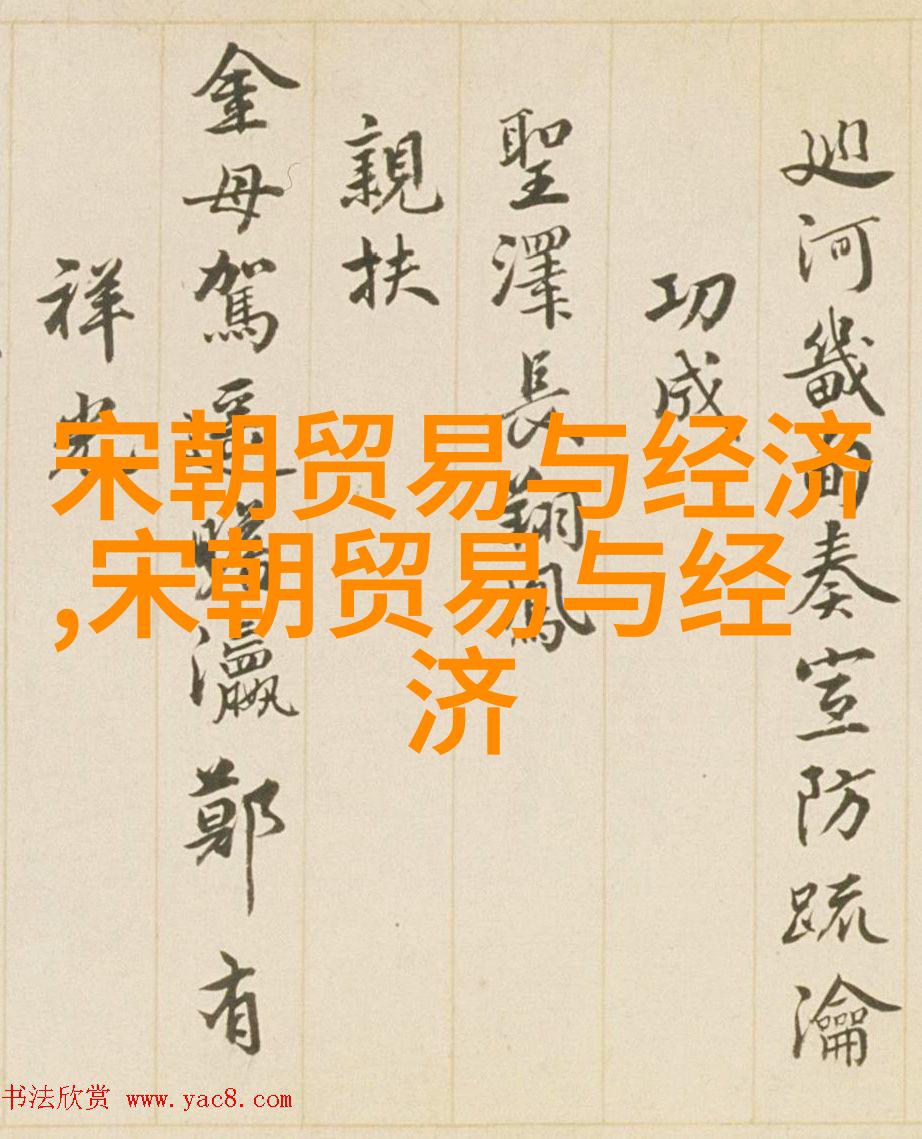 巡河畿甸奏宣防疏瀹
功成
聖澤長翔鳳
親扶
金母駕
瀛鄭有
祥光
宋朝贸易与经济
,宋朝贸易与经
济
书法欣赏 www.yac8.com